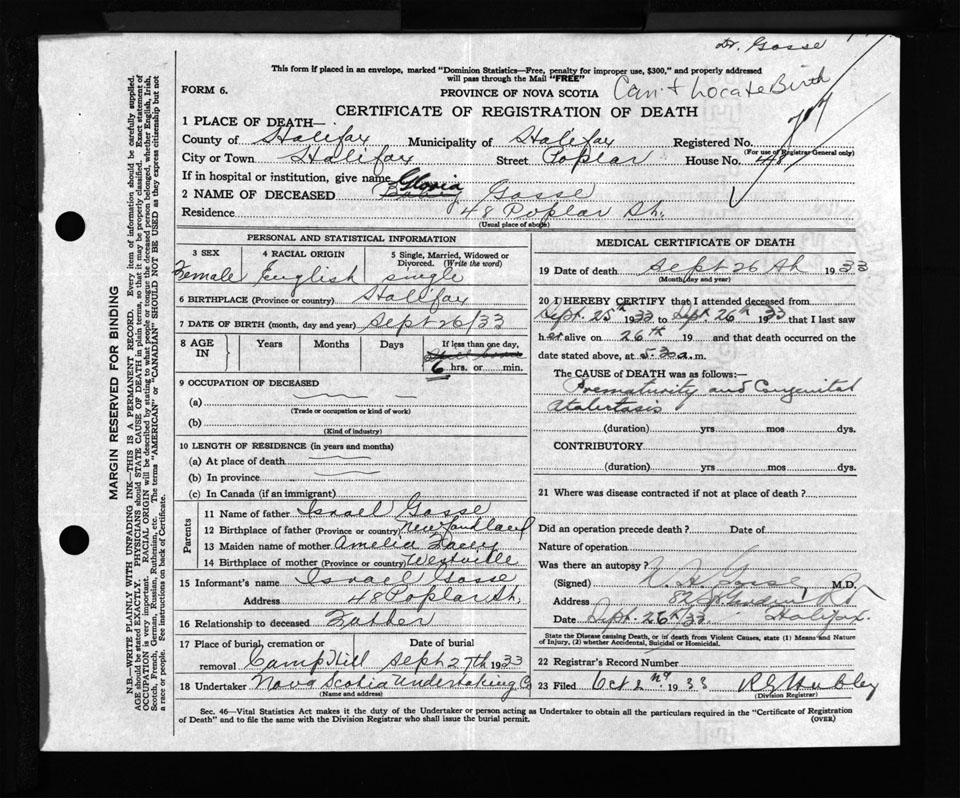 Dr. Gosse
This form if placed in an envelope, marked "Dominion Statistics—Free, penalty for improper use, $300," and properly addressed
will pass through the Mail "FREE"
FORM 6.
PROVINCE OF NOVA SCOTIA
Can't Locate Birth
CERTIFICATE OF REGISTRATION OF DEATH
1 PLACE OF DEATH—
County of Halifax Municipality of Halifax Registered No.
(For use of Registrar General only)
City or Town Halifax Street Poplar House No. 48
If in hospital or institution, give name
Gloria
2 NAME OF DECEASED Gosse
Residence 48 Poplar St.
(Usual place of abode)
PERSONAL AND STATISTICAL INFORMATION
3 SEX 4 RACIAL ORIGIN 5 Single, Married, Widowed or
Divorced. (Write the word)
Female English single
6 BIRTHPLACE (Province or country) Halifax
7 DATE OF BIRTH (month, day and year) Sept 26/33
8 AGE IN Years Months Days If less than one day,
6 hrs. or min.
9 OCCUPATION OF DECEASED
(a)
(Trade or occupation or kind of work)
(b)
(Kind of industry)
10 LENGTH OF RESIDENCE (in years and months)
(a) At place of death
(b) In province
(c) In Canada (if an immigrant)
Parents
11 Name of father Israel Gosse
12 Birthplace of father (Province or country) Newfoundland
13 Maiden name of mother Amelia Lacey
14 Birthplace of mother (Province or country) Westville
15 Informant's name Israel Gosse
Address 48 Poplar St.
16 Relationship to deceased Father
17 Place of burial, cremation or Date of burial
removal Camp Hill Sept 27th 1933
18 Undertaker Nova Scotia Undertaking Co
(Name and address)
MEDICAL CERTIFICATE OF DEATH
19 Date of death Sept 26th 1933
(Month, day and year)
20 I HEREBY CERTIFY that I attended deceased from
Sept. 25th 1933 to Sept. 26th 1933 that I last saw
her alive on 26th 19 and that death occurred on the
date stated above, at 5.30 a.m.
The CAUSE of DEATH was as follows:—
Prematurity and Congenital
Atalectasis
(duration) yrs mos dys.
CONTRIBUTORY
(duration) yrs mos dys.
21 Where was disease contracted if not at place of death?
Did an operation precede death? Date of
Nature of operation
Was there an autopsy?
(Signed) N. H. Gosse M.D.
Address Halifax.
Date Sept. 26th/33
State the Disease causing Death, or in death from Violent Causes, state (1) Means and Nature
of Injury, (2) whether Accidental, Suicidal or Homicidal.
22 Registrar's Record Number
23 Filed Oct 2nd 1933
(Division Registrar)
Sec. 46—Vital Statistics Act makes it the duty of the Undertaker or person acting as Undertaker to obtain all the particulars required in the "Certificate of Registration
of Death" and to file the same with the Division Registrar who shall issue the burial permit.
(OVER)
MARGIN RESERVED FOR BINDING
N.B.—WRITE PLAINLY WITH UNFADING INK—THIS IS A PERMANENT RECORD. Every item of information should be carefully supplied.
AGE should be stated EXACTLY. PHYSICIANS should STATE CAUSE OF DEATH in plain terms, so that it may be properly classified. Exact statement of
OCCUPATION is very important. RACIAL ORIGIN will be described by stating to what people or tongue the deceased person belonged, whether English, Irish,
Scotch, French, German, Russian, Ruthenian, etc. The terms "AMERICAN" or "CANADIAN" SHOULD NOT BE USED as they express citizenship but not
a race or people. See instructions on back of Certificate.